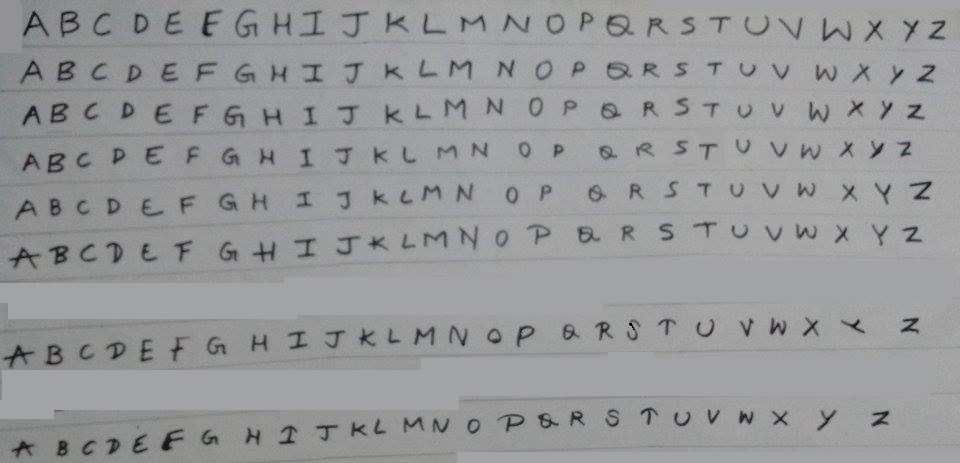 A B C D E F G H I J K L M N O P Q R S T U V W X Y Z
A B C D E F G H I J K L M N O P Q R S T U V W X Y Z
A B C D E F G H I J K L M N O P Q R S T U V W X Y Z
A B C D E F G H I J K L M N O P Q R S T U V W X Y Z
A B C D E F G H I J K L M N O P Q R S T U V W X Y Z
A B C D E F G H I J K L M N O P Q R S T U V W X Y Z
A B C D E F G H I J K L M N O P Q R S T U V W X Y Z
A B C D E F G H I J K L M N O P Q R S T U V W X Y Z